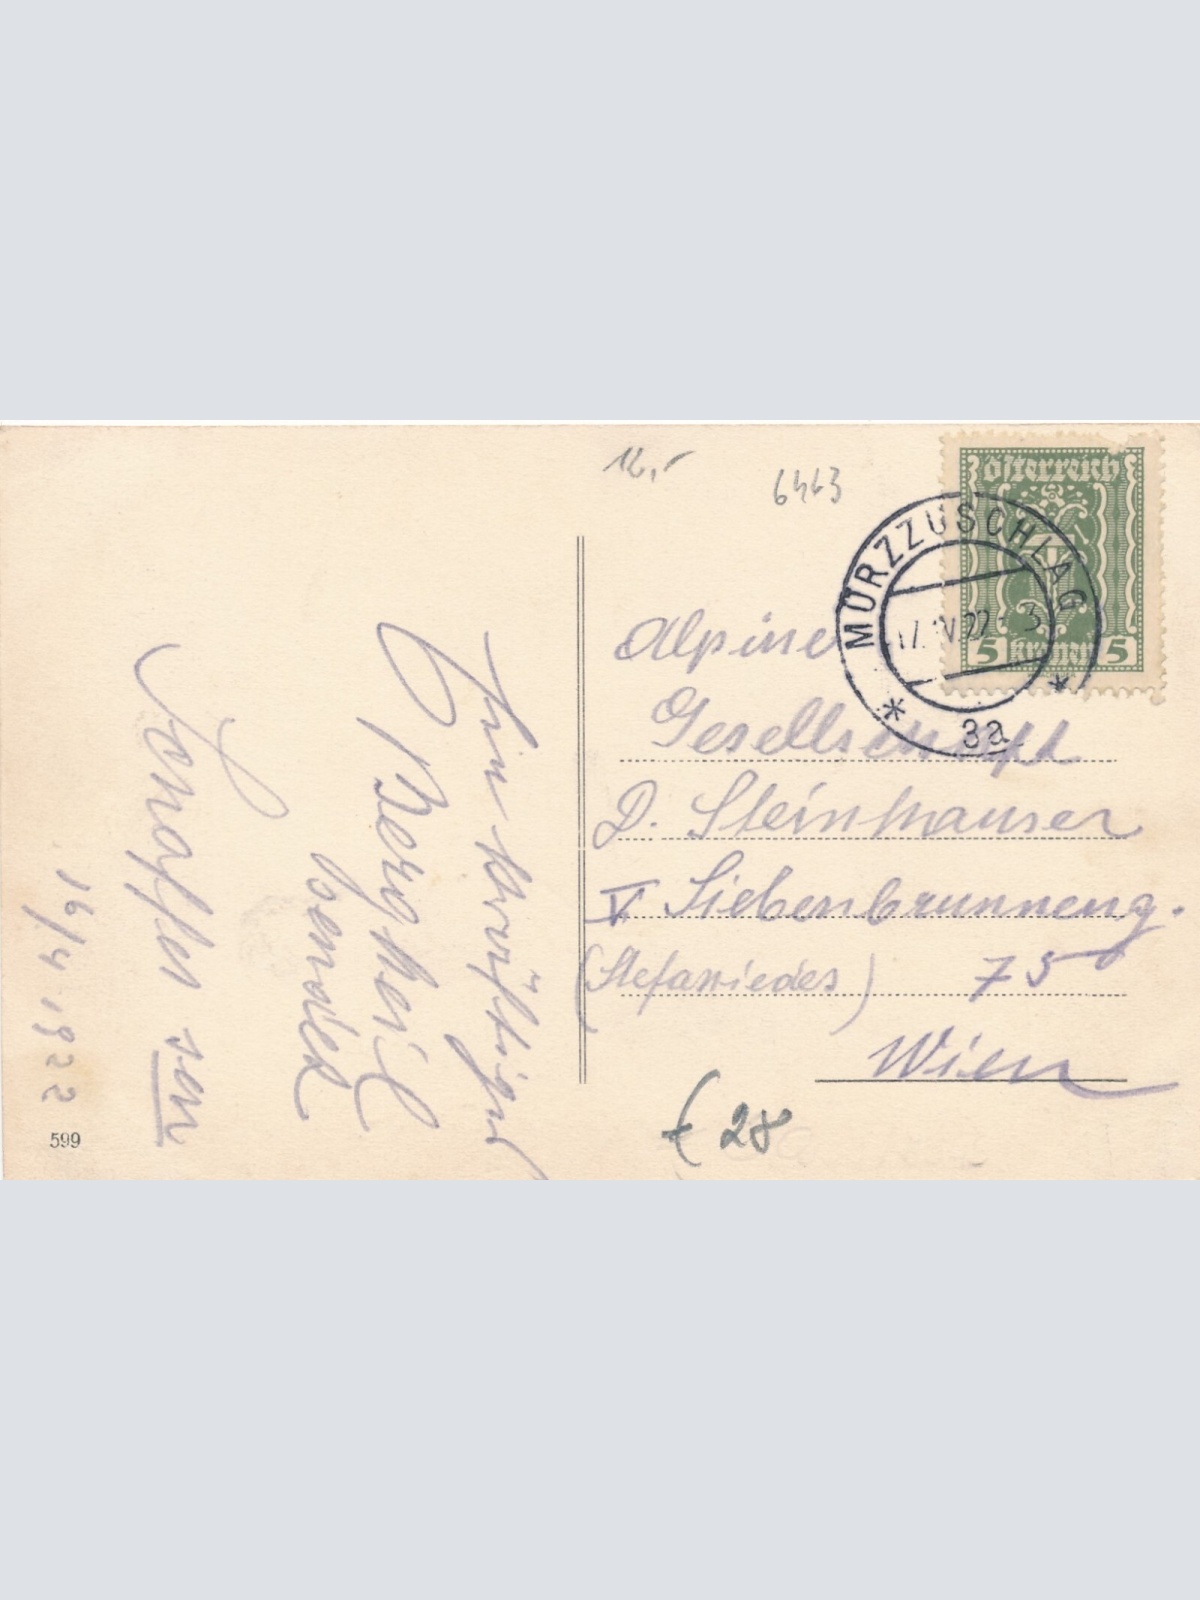 12,-
6443
österreich
5 kronen 5
MÜRZZUSCHLAG
17. IV 22 - 3
* 3a *
Alpine
Gesellschaft
D. Steinhauser
V Siebenbrunneng.
75
Wien
€ 28
Ein kräftiges
Berg Heil
sendet
Schaffer sen
16/4 1922
599